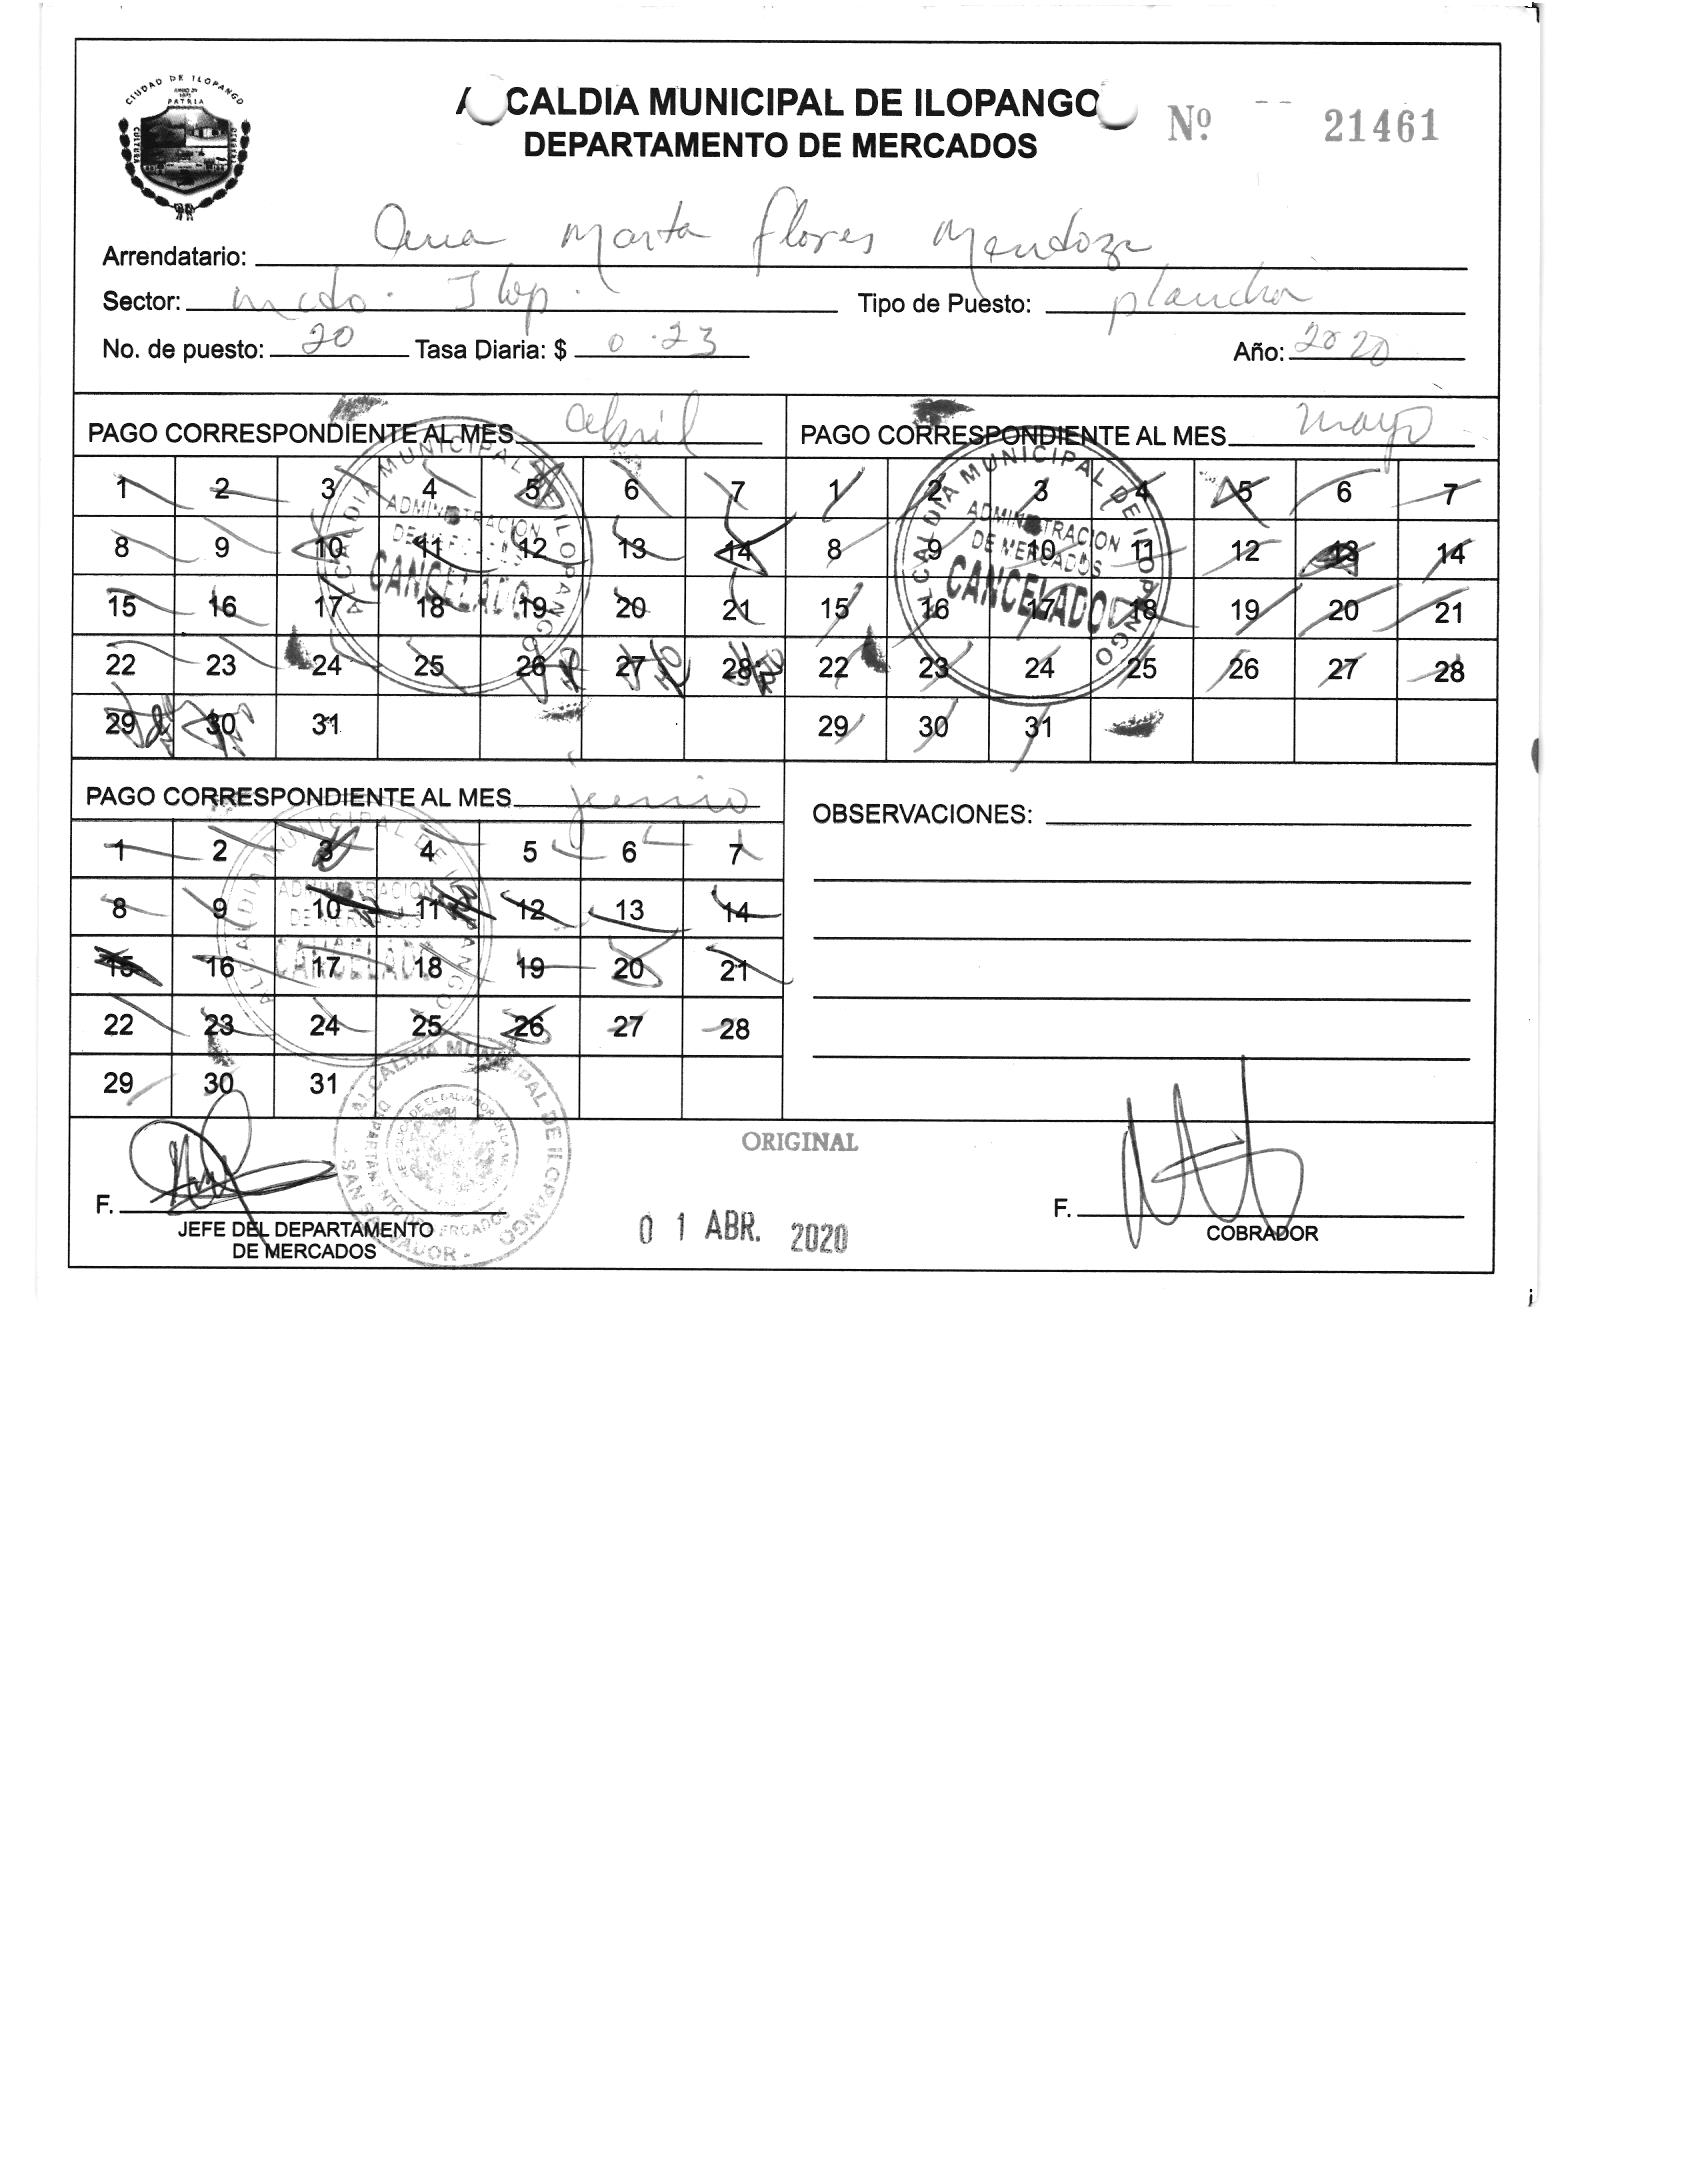 CIUDAD DE ILOPANGO
PATRIA
CULTURA
ALCALDIA MUNICIPAL DE ILOPANGO
DEPARTAMENTO DE MERCADOS
Nº 21461
Arrendatario: Ana Marta Flores Mendoza
Sector: mcdo. Ilop. Tipo de Puesto: plancha
No. de puesto: 20 Tasa Diaria: $ 0.23 Año: 2020
PAGO CORRESPONDIENTE AL MES abril
1 2 3 4 5 6 7
8 9 10 11 12 13 14
15 16 17 18 19 20 21
22 23 24 25 26 27 28
29 30 31
ALCALDIA MUNICIPAL DE ILOPANGO
ADMINISTRACION
DE MERCADOS
CANCELADO
PAGO CORRESPONDIENTE AL MES mayo
1 2 3 4 5 6 7
8 9 10 11 12 13 14
15 16 17 18 19 20 21
22 23 24 25 26 27 28
29 30 31
ALCALDIA MUNICIPAL DE ILOPANGO
ADMINISTRACION
DE MERCADOS
CANCELADO
PAGO CORRESPONDIENTE AL MES junio
1 2 3 4 5 6 7
8 9 10 11 12 13 14
15 16 17 18 19 20 21
22 23 24 25 26 27 28
29 30 31
ALCALDIA MUNICIPAL DE ILOPANGO
ADMINISTRACION
DE MERCADOS
CANCELADO
OBSERVACIONES:
ORIGINAL
ALCALDIA MUNICIPAL DE ILOPANGO
DEPARTAMENTO DE MERCADOS
SAN SALVADOR
F.
JEFE DEL DEPARTAMENTO
DE MERCADOS
01 ABR. 2020
F.
COBRADOR